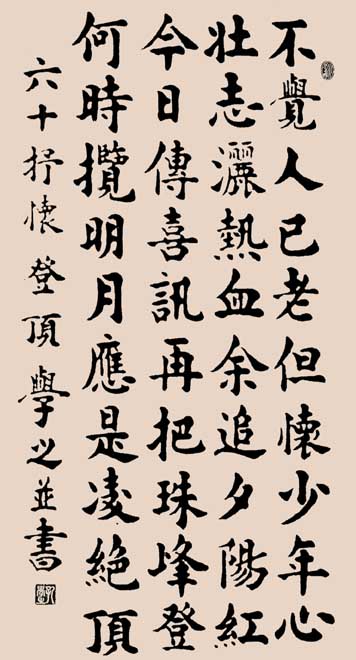 不覺人已老但懷少年心
壯志灑熱血余追夕陽紅
今日傳喜訊再把珠峰登
何時攬明月應是凌絕頂
六十抒懷登頂學之並書